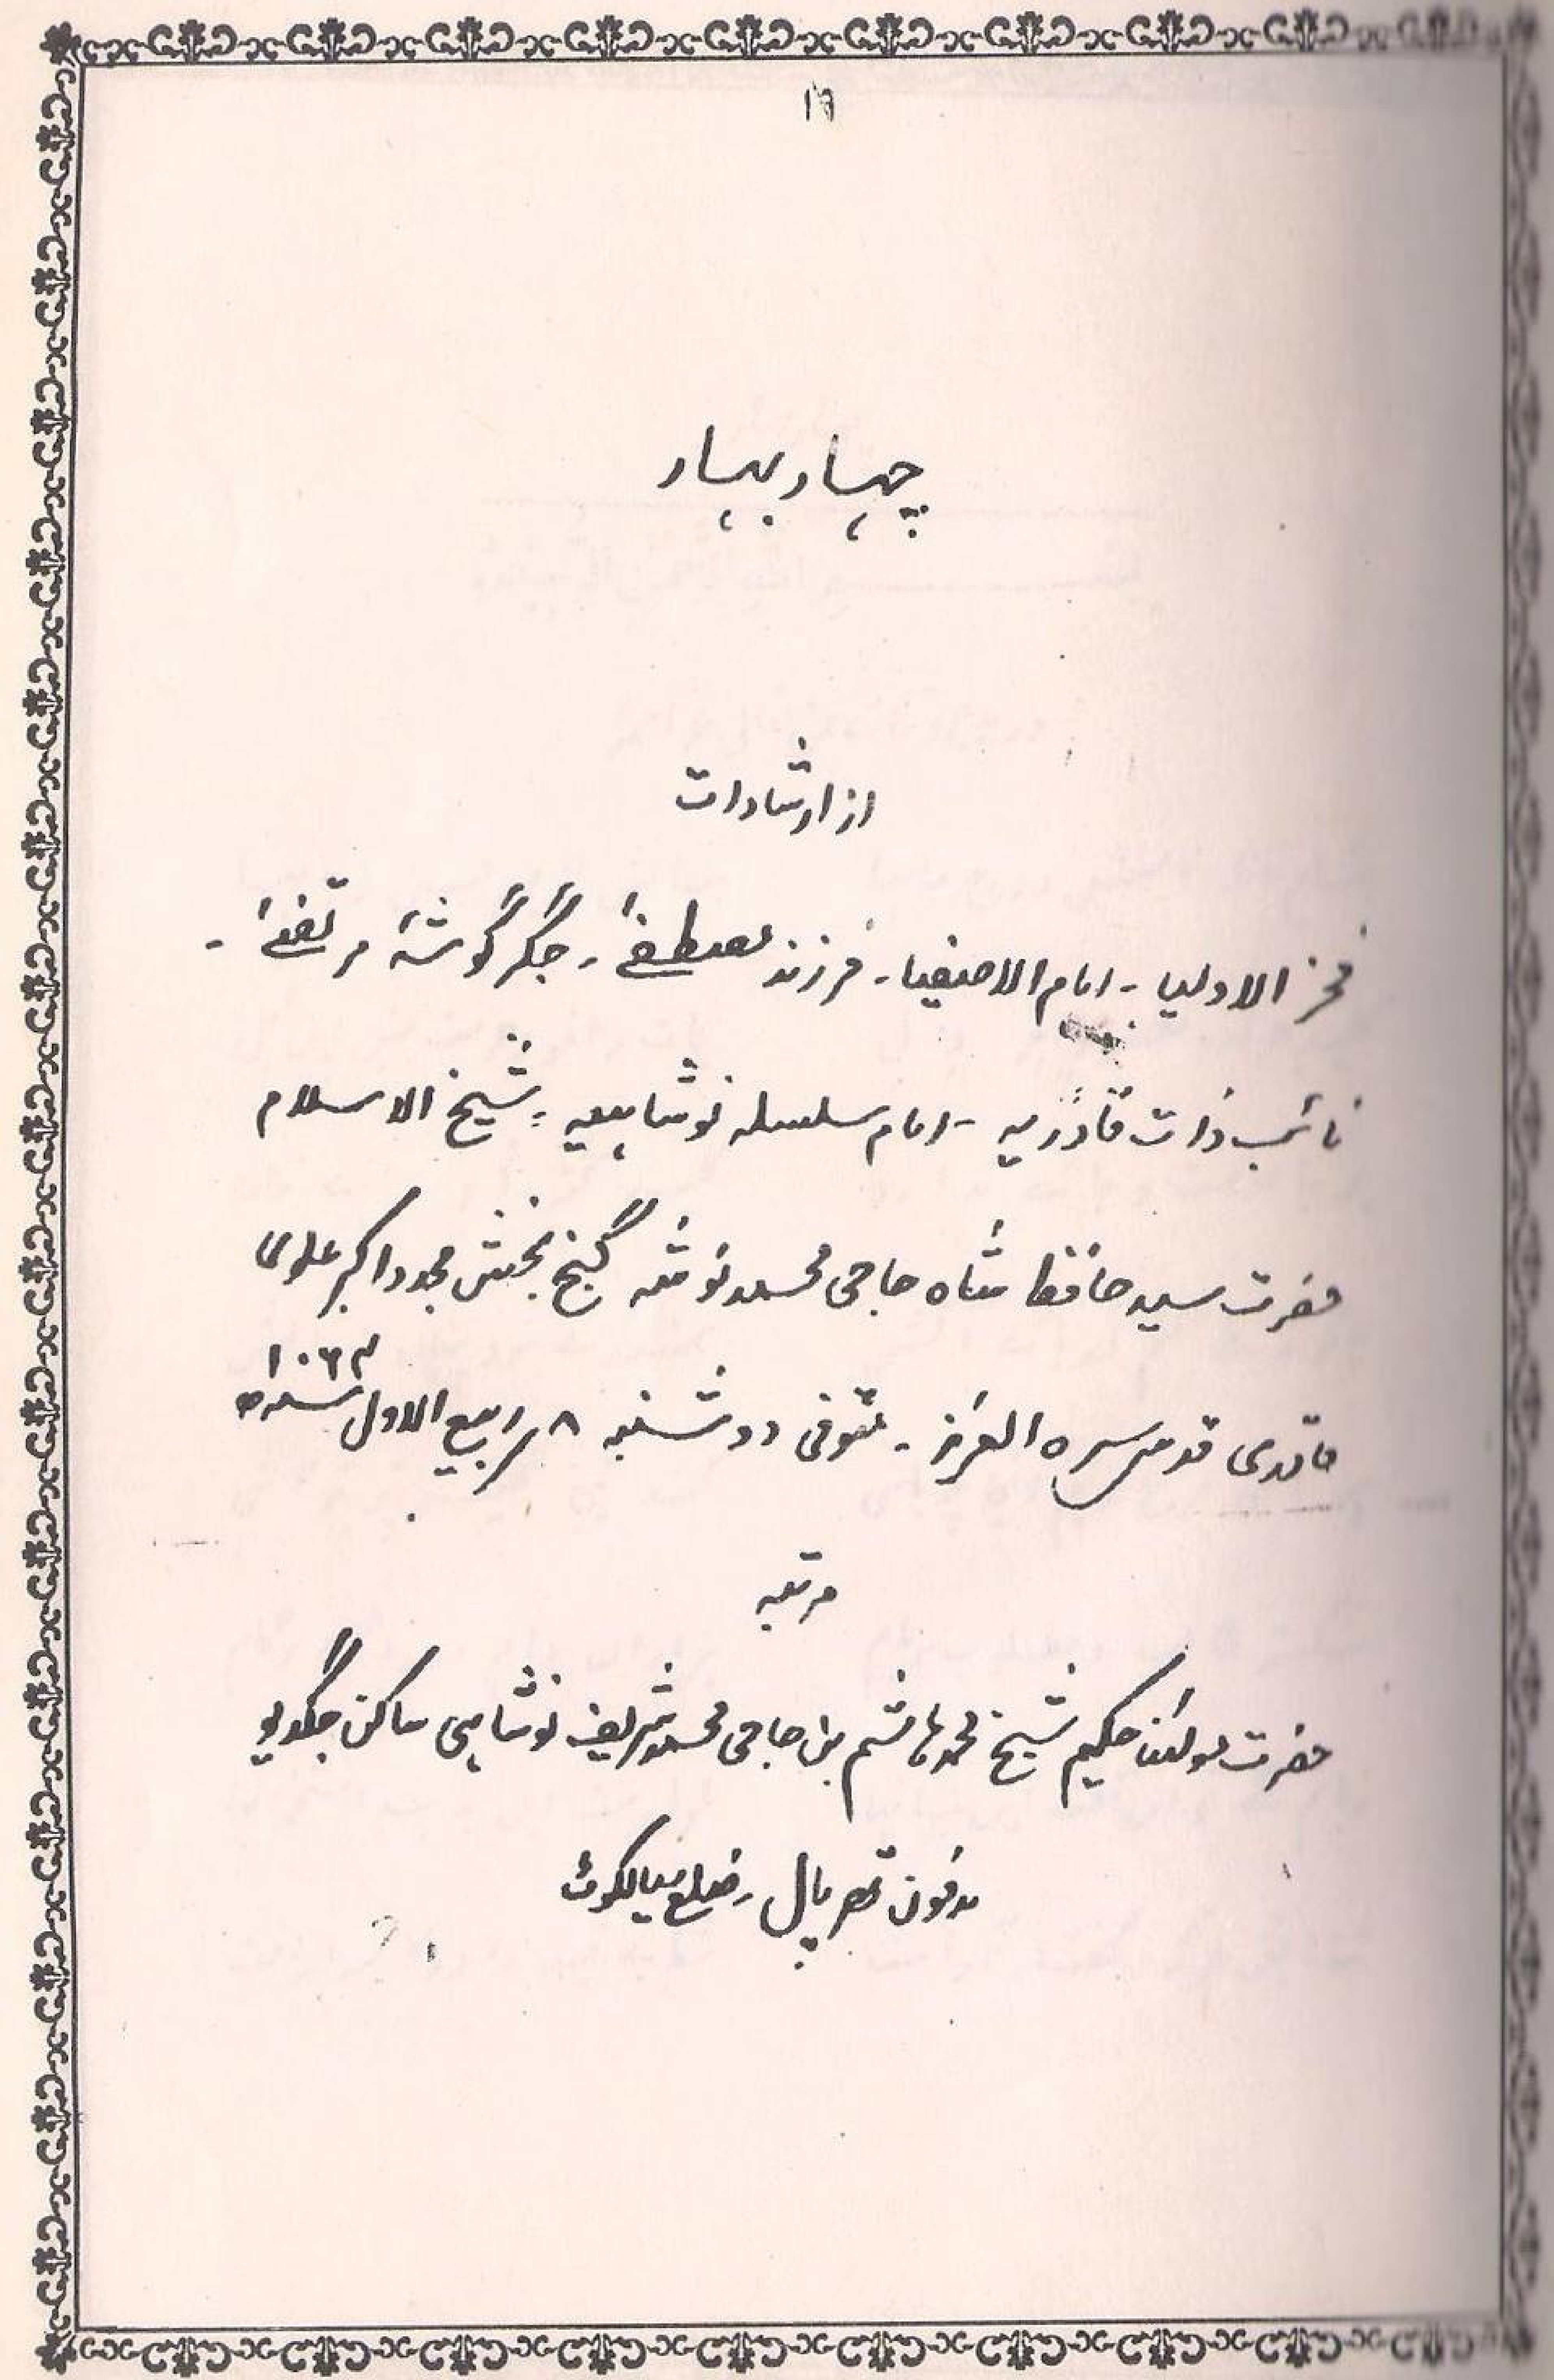 ۱۹
چہار بہار
از ارشادات
فخر الاولیا ۔ امام الاصفیا ۔ فرزند مصطفےٰ ۔ جگر گوشۂ مرتضےٰ ۔
نائب ذات قادریہ ۔ امام سلسلہ نوشاہیہ ۔ شیخ الاسلام
حضرت سید حافظ شاہ حاجی محمد نوشہ گنج بخش مجدد اکبر علوی
قادری قدس سره العزیز ۔ متوفی دوشنبہ ۸ ربیع الاول ۱۰۶۴ ھ
مرتبہ
حضرت مولٰنا حکیم شیخ محمد ہاشم بن حاجی محمد شریف نوشاہی ساکن جگدیو
مدفون تھرپال ۔ ضلع سیالکوٹ